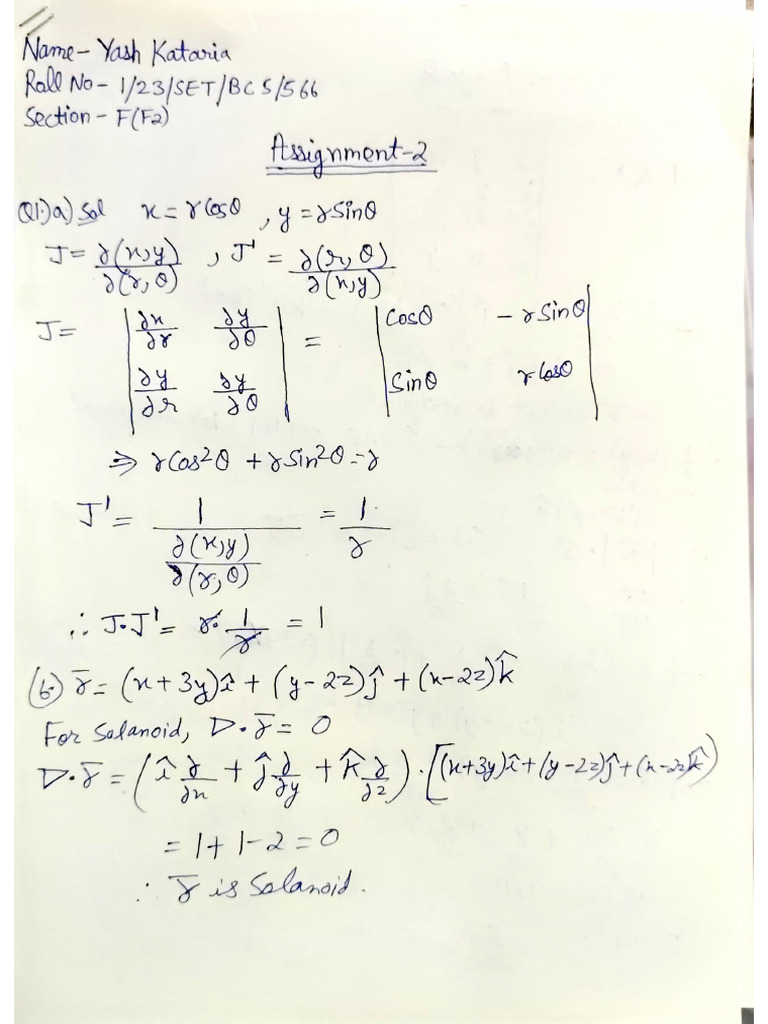 Name- Yash Kataria
Roll No- 1/23/SET/BCS/566
Section- F(F2)
Assignment-2
Q1.)a) Sol x = r cosθ , y = r sinθ
J = ∂(x,y)/∂(r,θ) , J' = ∂(r,θ)/∂(x,y)
J = | ∂x/∂r ∂y/∂θ | = | cosθ - r sinθ |
| ∂y/∂r ∂y/∂θ | | sinθ r cosθ |
⇒ r cos²θ + r sin²θ = r
J' = 1/(∂(x,y)/∂(r,θ)) = 1/r
∴ J·J' = r·1/r = 1
(b). r̄ = (x+3y)î + (y-2z)ĵ + (x-2z)k̂
For Solanoid, ∇·r̄ = 0
∇·r̄ = (î ∂/∂x + ĵ ∂/∂y + k̂ ∂/∂z)·[(x+3y)î+(y-2z)ĵ+(x-2z)k̂)
= 1+1-2 = 0
∴ r̄ is Solanoid.